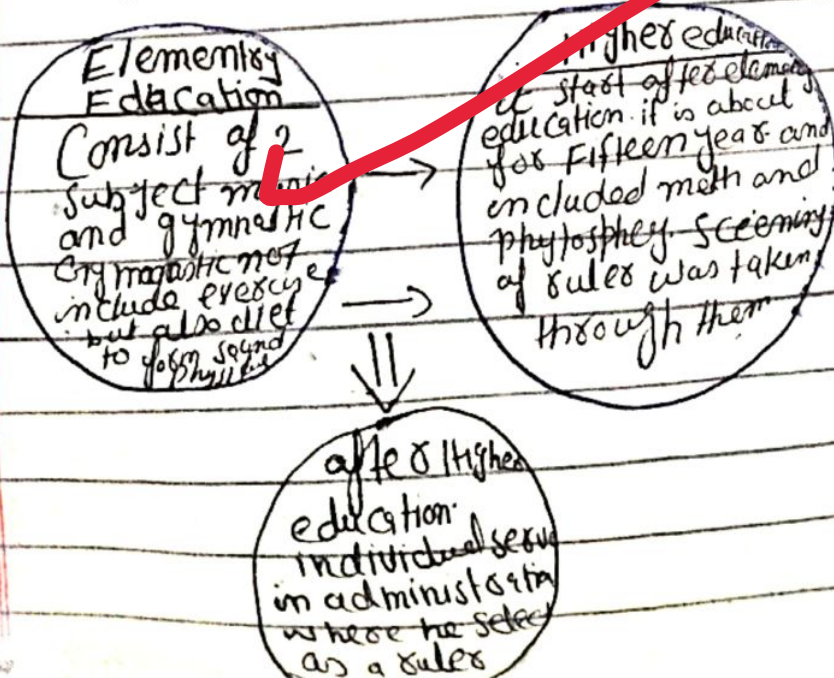 Elementry
Edacation
Consist of 2
subject music
and gymnastic
Gymnastic not
include exercise
but also diet
to form sound
Higher education
it start after
education. it is about
for Fifteen year and
included math and
phylosphey. Sceening
of ruler was taken
through them
after Higher
education.
individual serve
in administratin
where he select
as a ruler